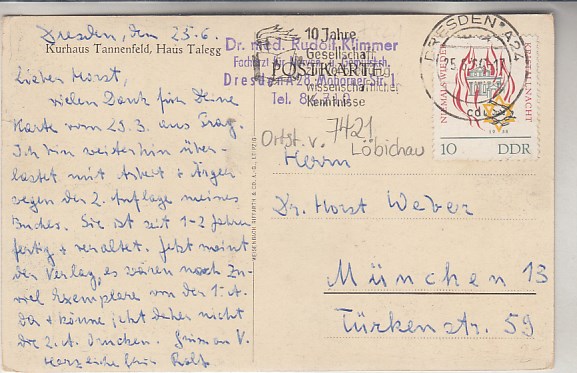 Dresden, den 25.6.
Kurhaus Tannenfeld, Haus Talegg
Lieber Horst,
vielen Dank für Deine
Karte vom 29.3. aus Prag.
Ich bin weiterhin über-
lastet mit Arbeit + Ärger
wegen der 2. Auflage meines
Buches. Sie ist seit 1-2 Jahren
fertig + veraltet. Jetzt meint
der Verlag, es wären noch zu-
viel Exemplare von der 1. A.
da + könne jetzt daher nicht
die 2. A. drucken. V.
Herzliche Rolf
10 Jahre
Gesellschaft
wissenschaftlicher
Kenntnisse
Dr. med. Rudolf Klimmer
Facharzt für Nerven- u. Gemütsk.
Dresden A 28, Straße 1
Tel. 8
POSTKARTE
DRESDEN A24
NIEMALS WIEDER
KRISTALLNACHT
10 DDR
Ortst. v. 7421
Löbichau
Herrn
Dr. Horst Weber
München 13
Türkenstr. 59